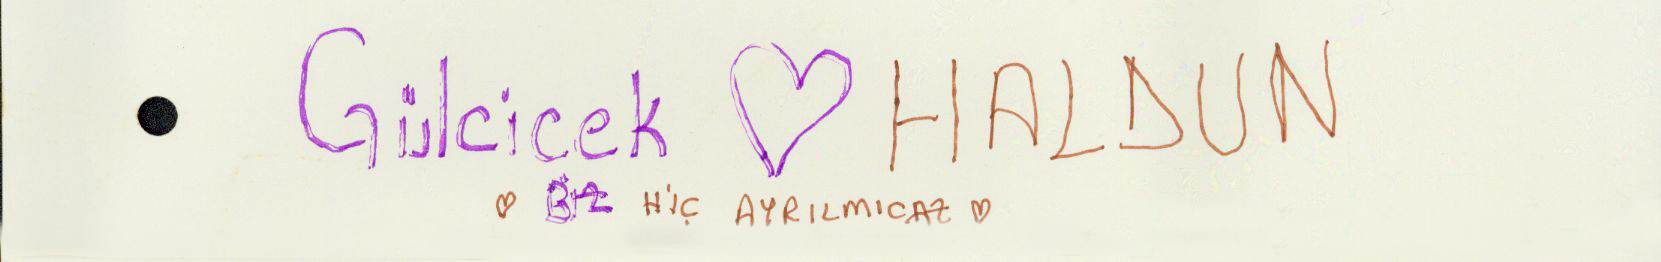 Gülcicek ♡ HALDUN
♡ BİZ HİÇ AYRILMICAZ ♡